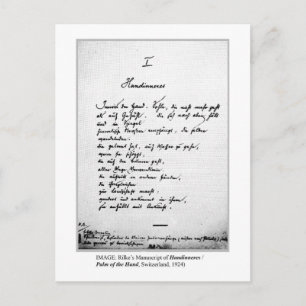 I
Handinneres
Innres der Hand. Sohle, die nicht mehr geht
als auf Gefühl. die sich nach oben hält
und im Spiegel
himmlische Straßen empfängt, die selber
wandelnden.
die gelernt hat, auf Wasser zu gehn,
wenn sie schöpft,
die auf den Brunnen geht,
aller Wege Verwandlerin.
die auftritt in anderen Händen,
die ihresgleichen
zur Landschaft macht:
wandert und ankommt in ihnen,
sie anfüllt mit Ankunft.
IMAGE. Rilke's Manuscript of Handinneres /
Palm of the Hand, Switzerland, 1924)